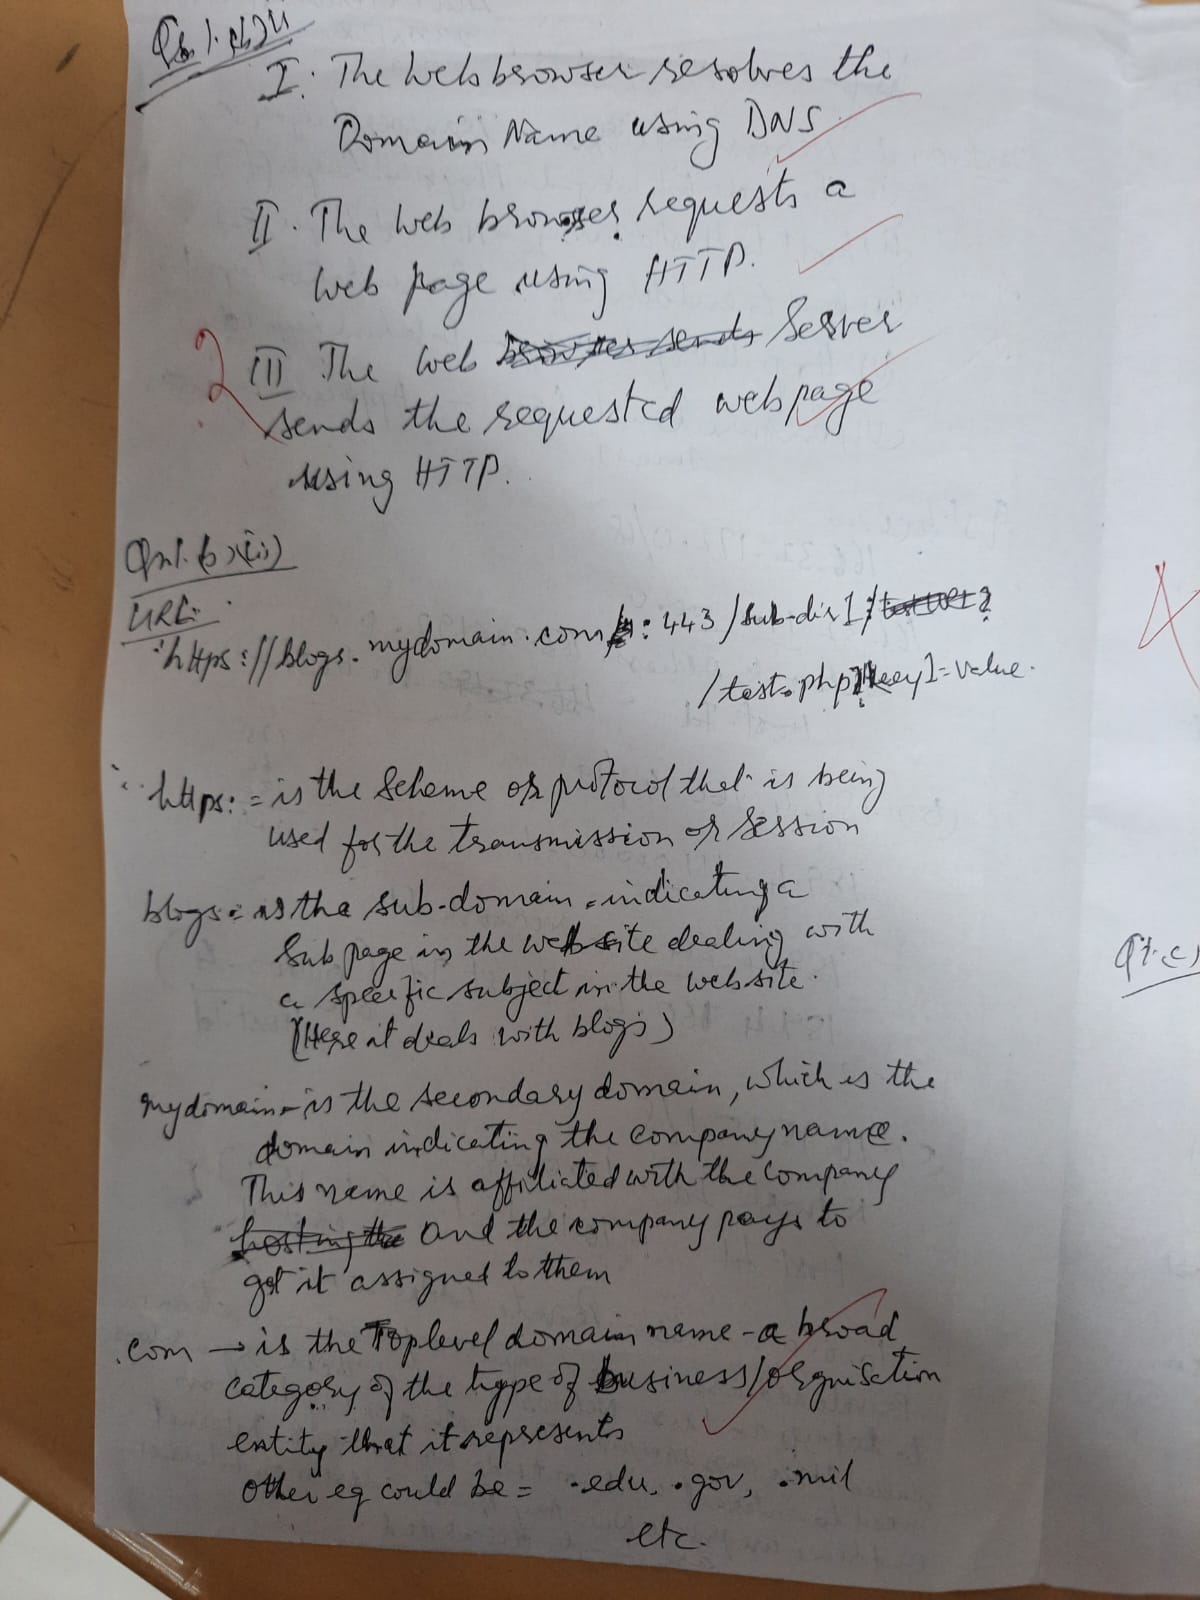 I. The Web browser resolves the
Domain Name using DNS
II. The Web browser requests a
Web page using HTTP.
2
III The Web Server
sends the requested webpage
using HTTP.
Qn1. b)(ii)
URL:
https://blogs.mydomain.com:443/sub-dir1
/test.php?key1=value.
https: = is the Scheme or protocol that is being
used for the transmission or session
blogs = is the sub-domain - indicating a
Sub page in the website dealing with
a specific subject in the website.
(Here it deals with blogs)
mydomain - is the secondary domain, which is the
domain indicating the company name.
This name is affiliated with the company
and the company pays to
get it assigned to them
.com → is the Top level domain name - a broad
category of the type of business/organisation
entity that it represents
Other eg could be = .edu, .gov, .mil
etc.